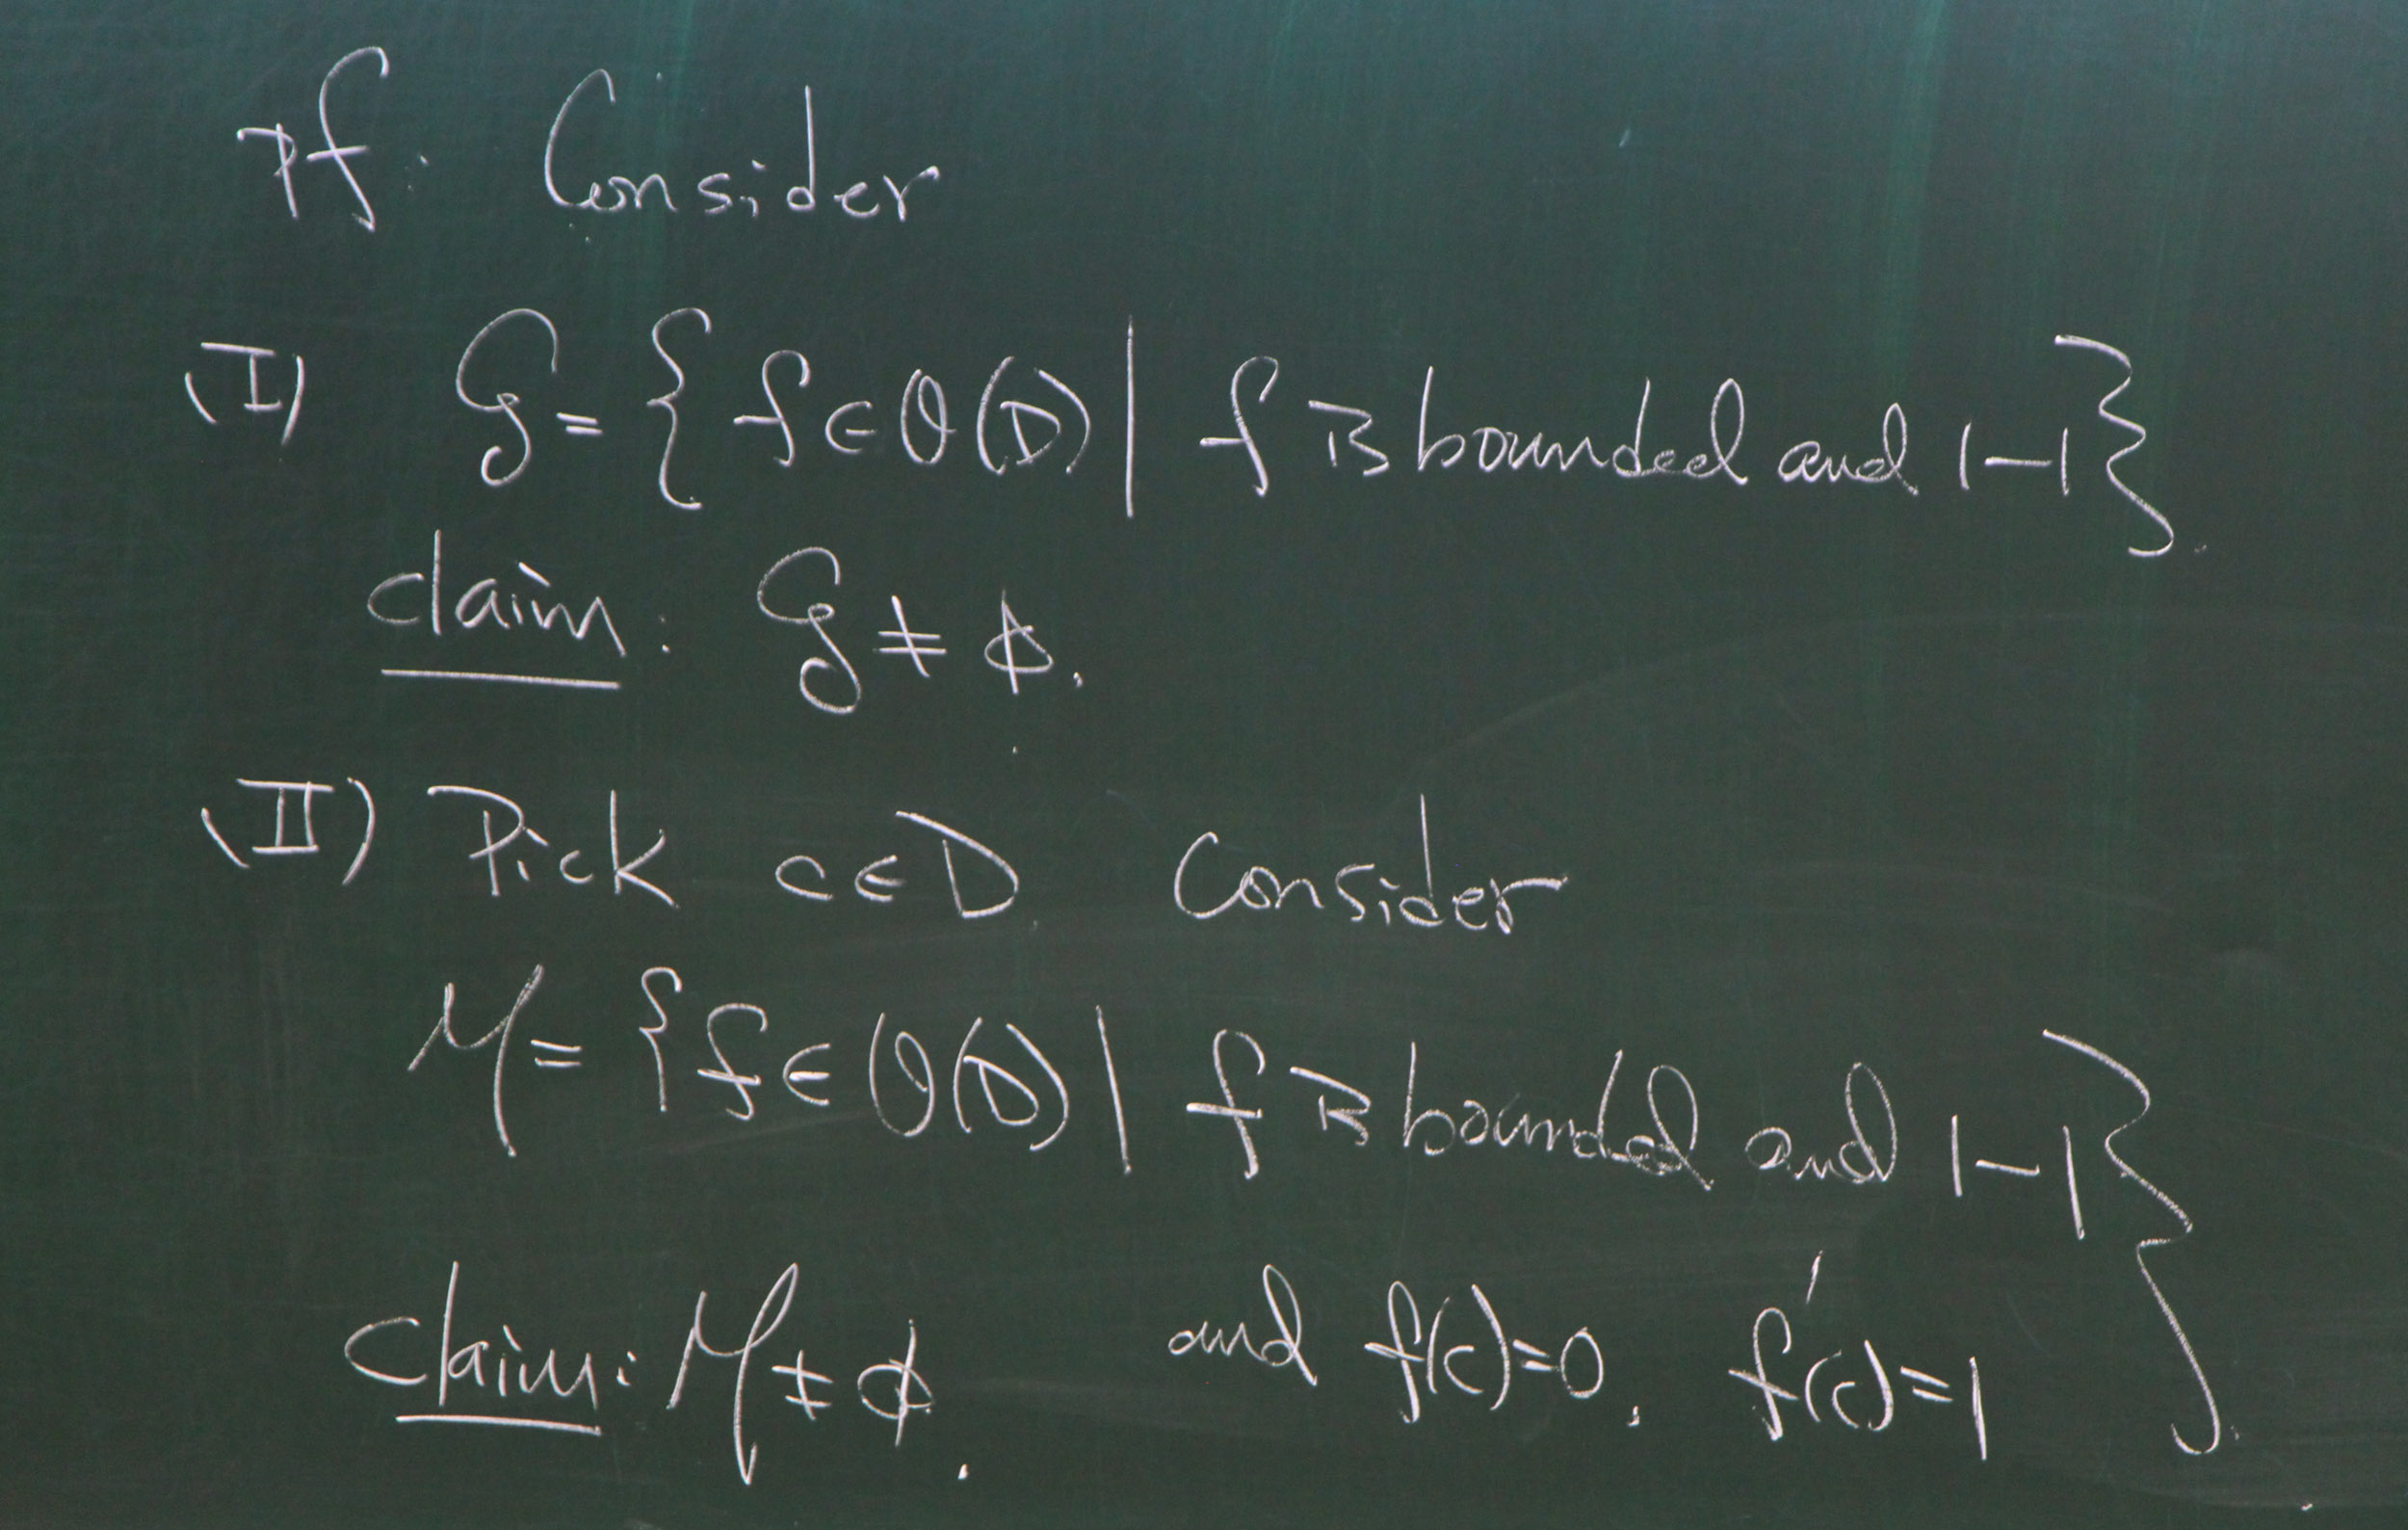 Pf: Consider
(I) 𝒢 = { f ∈ 𝒪(D) | f is bounded and 1-1 }.
claim: 𝒢 ≠ ϕ.
(II) Pick c ∈ D. Consider
ℳ = { f ∈ 𝒪(D) | f is bounded and 1-1
and f(c)=0, f'(c)=1 }.
claim: ℳ ≠ ϕ.